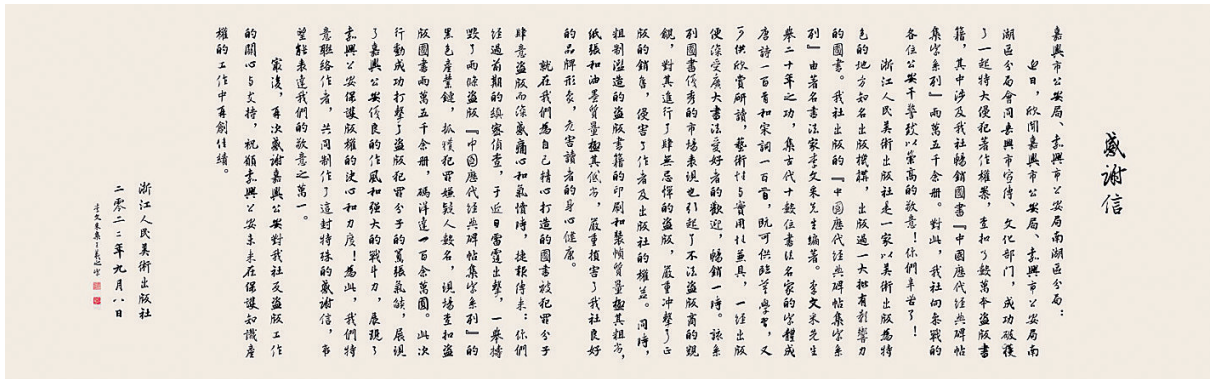 感谢信
嘉興市公安局、嘉興市公安局南湖區分局：
近日，欣聞嘉興市公安局、嘉興市公安局南
湖區分局會同嘉興市宣傳、文化部門，成功破獲
了一起特大侵犯著作權案，查扣了數萬本盜版書
籍，其中涉及我社暢銷圖書『中國歷代經典碑帖
集字系列』兩萬五千余册。對此，我社向参戰的
各位公安干警致以崇高的敬意！你們辛苦了！
浙江人民美術出版社是一家以美術出版為特
色的地方知名出版機構，出版過一大批有影響力
的圖書。我社出版的『中國歷代經典碑帖集字系
列』由著名書法家李文采先生編著。李文采先生
舉二十年之功，集古代十數位書法名家的字體成
唐詩一百首和宋詞一百首，既可供臨摹學習，又
可供欣賞研讀，藝術性与實用性兼具，一經出版
便深受廣大書法愛好者的歡迎，暢銷一時。該系
列圖書優秀的市場表現也引起了不法盜版商的覬
覦，對其進行了肆無忌憚的盜版，嚴重冲擊了正
版的銷售，侵害了作者及出版社的權益。同時，
粗制濫造的盜版書籍的印刷和裝幀質量極其粗劣，
紙張和油墨質量極其低劣，嚴重損害了我社良好
的品牌形象，危害讀者的身心健康。
就在我們為自己精心打造的圖書被犯罪分子
肆意盜版而深感痛心和氣憤時，捷報傳来：你們
經過前期的縝密偵查，于近日雷霆出擊，一舉搗
毀了兩條盜版『中國歷代經典碑帖集字系列』的
黑色産業鏈，抓獲犯罪嫌疑人數名，現場查扣盜
版圖書兩萬五千余册，碼洋達一百余萬圓。此次
行動成功打擊了盜版犯罪分子的囂張氣焰，展現
了嘉興公安優良的作風和强大的戰斗力，展現了
嘉興公安保護版權的决心和力度！為此，我們特
意聯絡作者，共同制作了這封特殊的感謝信，希
望能表達我們的敬意之萬一。
最後，再次感謝嘉興公安對我社反盜版工作
的關心与支持，祝願嘉興公安未来在保護知識産
權的工作中再創佳績。
浙江人民美術出版社
二零二二年九月八日
李文采集王羲之字